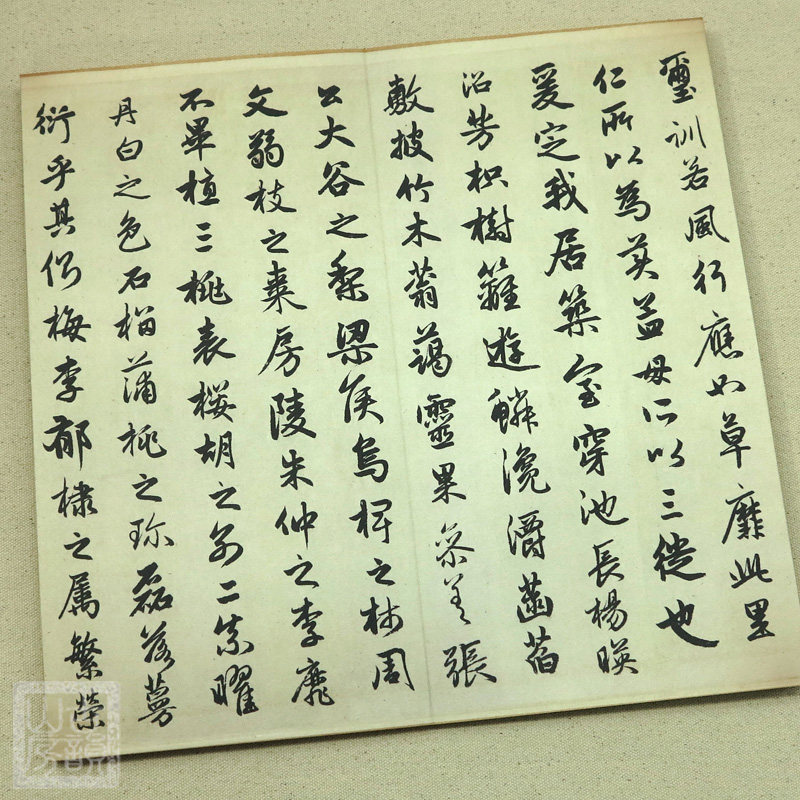 璽訓若風行應如草靡此里
仁所以為美孟母所以三徙也
爰定我居築室穿池長楊暎
沼芳枳樹籬遊鱗瀺灂菡萏
敷披竹木蓊藹靈果參差張
公大谷之梨梁侯烏椑之柿周
文弱枝之棗房陵朱仲之李靡
不畢植三桃表櫻胡之別二柰曜
丹白之色石榴蒲桃之珎磊落蔓
衍乎其側梅李郁棣之屬繁榮